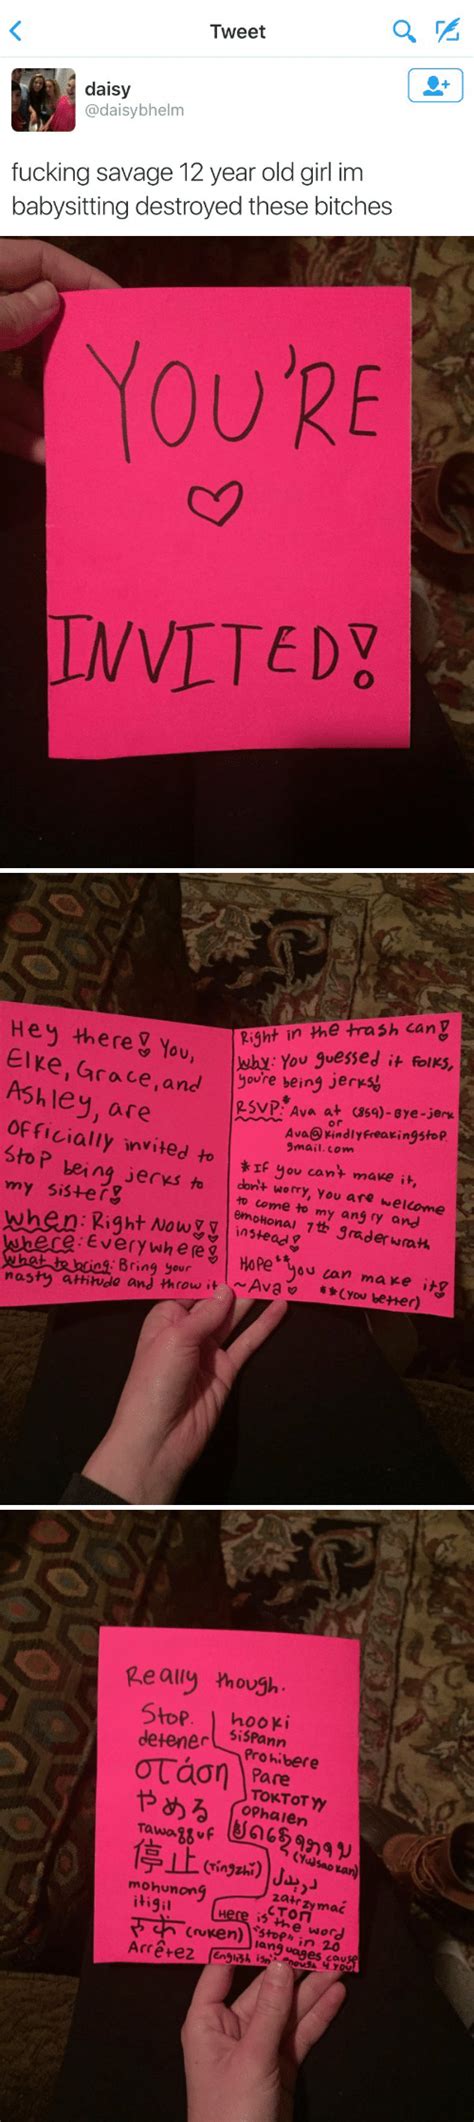 Tweet
daisy
@daisybhelm
fucking savage 12 year old girl im
babysitting destroyed these bitches
YOU'RE
INVITED!
Hey there! You,
Elke, Grace, and
Ashley, are
officially invited to
stop being jerks to
my sister!
When: Right Now!!
Where: Everywhere!
What to bring: Bring your
nasty attitude and throw it
Right in the trash can!
Why: You guessed it folks,
you're being jerks!
RSVP:* Ava at (859)-Bye-jerk
or
Ava@kindlyfreakingstop.
gmail.com
*If you can't make it,
don't worry, you are welcome
to come to my angry and
emotional 7th grader wrath
instead!
Hope** you can make it!
~Ava ♡ **(you better)
Really though.
Stop.
detener
στάση
やめる
Tawagguf
停止 (Tíngzhǐ)
mohunong
itigil
(ruken)
Arrêtez
hooki
sispann
Prohibere
Pare
ТОКТОТУУ
ophalen
(Yudsaokan)
zatrzymać
стоп
Here is the word
"stop" in 20
languages cause
English isn't enough 4 you!